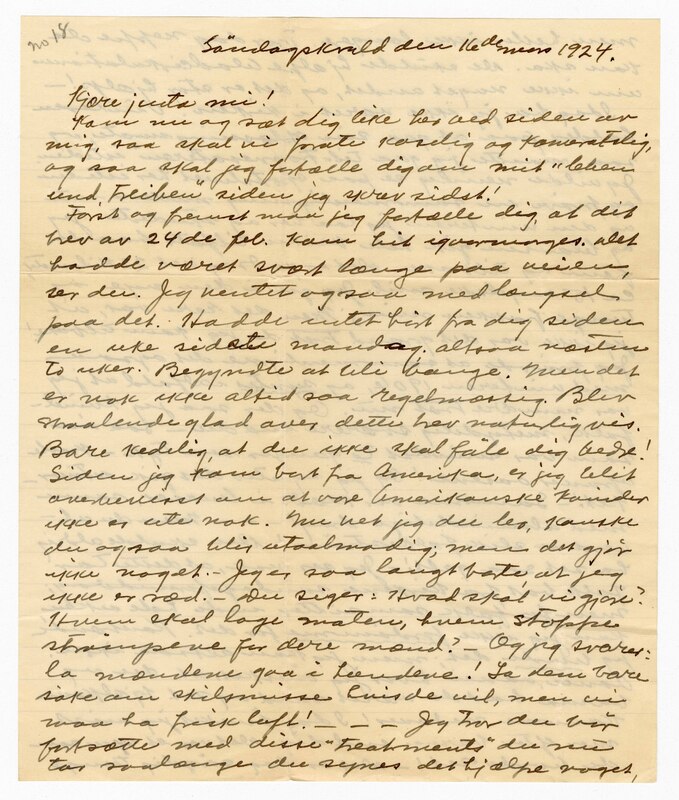 no 18
Söndagskvæld den 16de mars 1924.
Kjære Juta mi!
Kom nu og sæt dig like her ved siden av
mig, saa skal vi prate koselig og kameratslig,
og saa skal jeg fortælle dig om mit "leben
und treiben" siden jeg skrev sidst!
Först og fremst maa jeg fortælle dig, at dit
brev av 24de feb. kom hit igaarmorges. Det
hadde været svært længe paa veien,
ser du. Jeg ventet ogsaa med længsel
paa det. Hadde intet hört fra dig siden
en uke sidste mandag, altsaa næsten
to uker. Begyndte at bli bange. Men det
er nok ikke altid saa regelmæssig. Blev
straalende glad over dette brev naturligvis.
Bare kedelig, at du ikke skal föle dig bedre!
Siden jeg kom bort fra Amerika, er jeg blit
overbevisst om at vore Amerikanske kvinder
ikke er ute nok. Nu vet jeg du ler, kanske
du ogsaa blir utaalmodig, men det gjör
ikke noget. - Jeg er saa langt borte at jeg
ikke er ræd. - Du siger: Hvad skal vi gjöre?
Hvem skal lage maten, hvem stoppe
strömpene for dere mænd? - Og jeg svarer:
la mændene gaa i hundene! La dem bare
söke om skilsmisse hvis de vil, men vi
maa ha frisk luft! - - - Jeg tror du bör
fortsætte med disse "treatments" du nu
tar saalænge du synes det hjælpe noget,